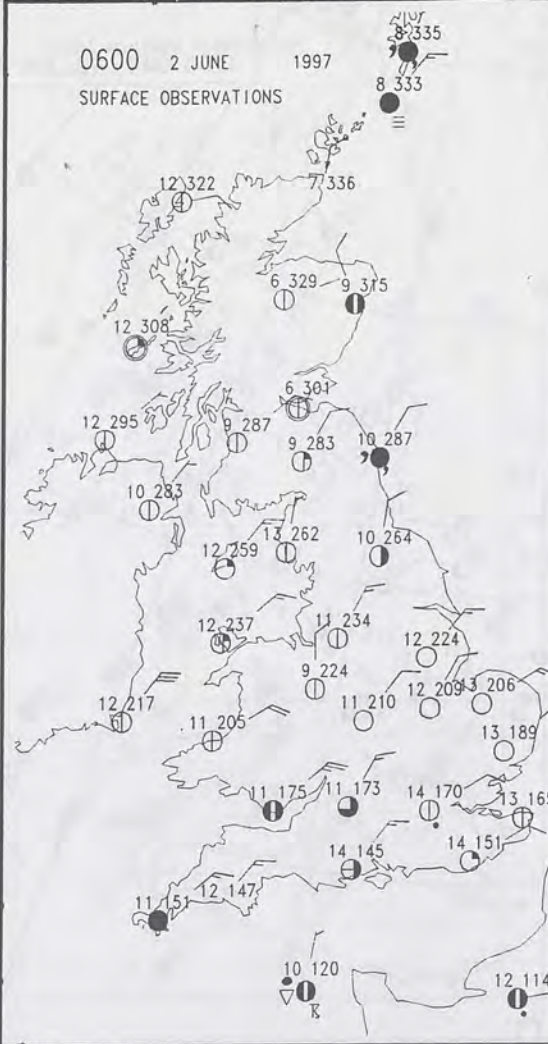 0600 2 JUNE 1997
SURFACE OBSERVATIONS
8 335
8 333
12 322
7 336
6 329
9 315
12 308
6 301
12 295
9 287
9 283
10 287
10 283
13 262
10 264
12 259
11 234
12 237
12 224
9 224
13 206
12 209
11 210
12 217
11 205
13 189
11 175
11 173
14 170
13 165
14 151
14 145
12 147
11 151
10 120
12 114